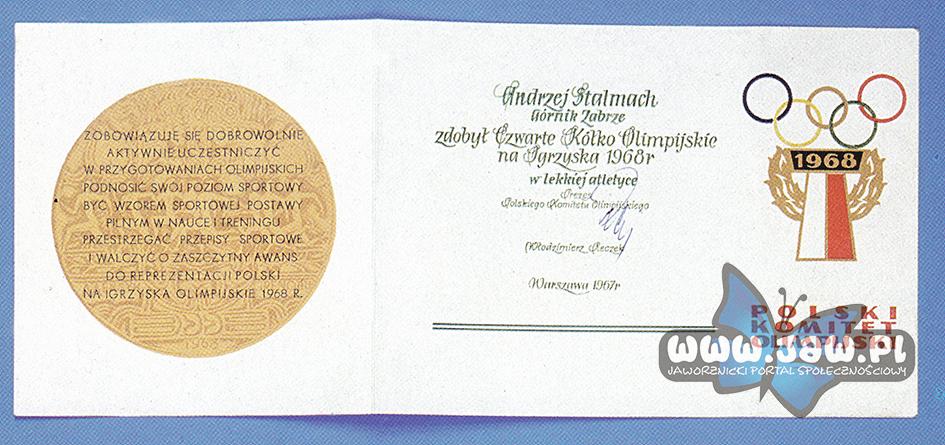 ZOBOWIĄZUJE SIĘ DOBROWOLNIE
AKTYWNIE UCZESTNICZYĆ
W PRZYGOTOWANIACH OLIMPIJSKICH
PODNOSIĆ SWÓJ POZIOM SPORTOWY
BYĆ WZOREM SPORTOWEJ POSTAWY
PILNYM W NAUCE I TRENINGU
PRZESTRZEGAĆ PRZEPISY SPORTOWE
I WALCZYĆ O ZASZCZYTNY AWANS
DO REPREZENTACJI POLSKI
NA IGRZYSKA OLIMPIJSKIE 1968 R.
1968
Andrzej Stalmach
Górnik Zabrze
zdobył Czwarte Kółko Olimpijskie
na Igrzyska 1968r
w lekkiej atletyce
Prezes
Polskiego Komitetu Olimpijskiego
Włodzimierz Reczek
Warszawa 1967r
1968
POLSKI
KOMITET
OLIMPIJSKI
www.jaw.pl
JAWORZNICKI PORTAL SPOŁECZNOŚCIOWY